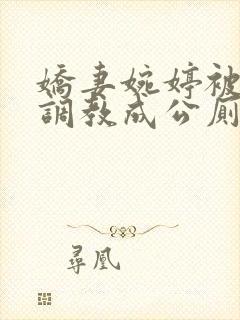 嬌妻婉婷被
調教成公廁
尋凰